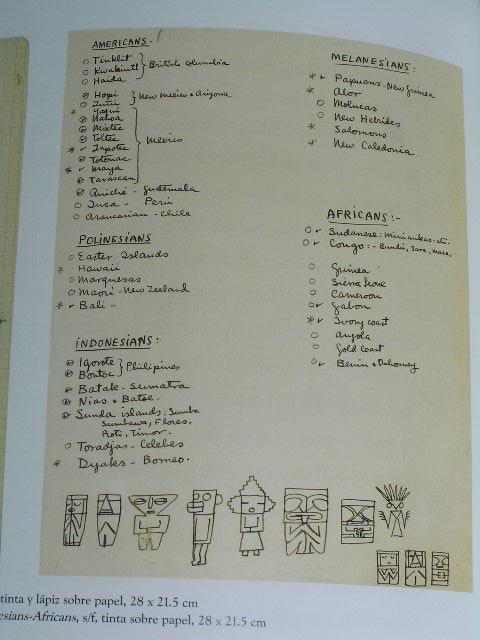 AMERICANS -
Tinklit
Kwakiutl
Haida
British Columbia
Hopi
Zuñi
New Mexico + Arizona
Yaqui
Nahoa
Mixtec
Toltec
Zapotec
Totonac
Maya
Tarascan
Mexico
Quiché - Guatemala
Inca - Perú
Araucanian - Chile
POLINESIANS
Easter Islands
Hawaii
Marquesas
Maori - New Zeeland
Bali -
INDONESIANS:
Igorote
Bontoc
Philipines
Batak - Sumatra
Nias + Batoe.
Sunda islands: Sumba
Sumbawa, Flores,
Roti, Timor.
Toradjas - Celebes
Dyaks - Borneo.
MELANESIANS:
Papuans - New Guinea
Alor
Molucas
New Hebrides
Salomons
New Caledonia.
AFRICANS:-
Sudanese:
Congo: -
Guinea
Sierra Leone
Cameroon
Gabon
Ivory coast
Angola
Gold Coast
Benin + Dahomey
tinta y lápiz sobre papel, 28 x 21.5 cm
esians-Africans, s/f, tinta sobre papel, 28 x 21.5 cm